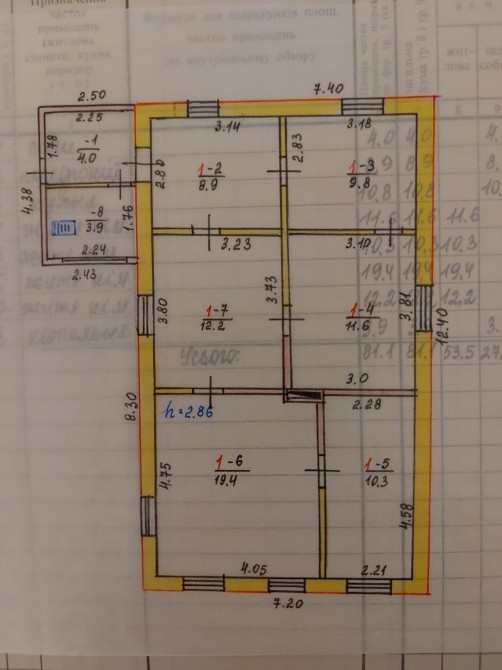 Призначення
частин
приміщень
(житлова
кімната, кухня,
коридор
і т. п.)
Формули для підрахунків площ,
частин приміщень
по внутрішньому обміру
жит-
лова
7.40
2.50
2.25
3.14
3.18
1.78
-1
4.0
2.80
1-2
8,9
2.83
1-3
9.8
4.0
4.0
4.38
-8
3.9
1.76
10.8
10.8
11.6
11.6
11.6
2.24
2.43
3.23
3.10
10.3
10,3
10,3
19.4
19.4
19,4
3.80
1-7
12.2
3.73
1-4
11.6
3.81
12.40
12,2
12,2
Усього:
81.1
81.1
53.5
27
3.0
8.30
h=2.86
2.28
4.75
1-6
19,4
1-5
10,3
4.58
4.05
2.21
7.20